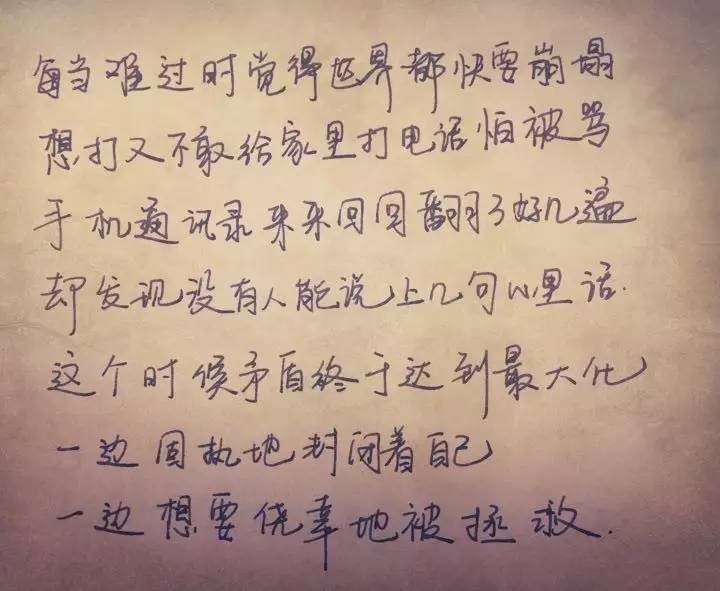 每当难过时觉得世界都快要崩塌
想打又不敢给家里打电话怕被骂
手机通讯录来来回回翻了好几遍
却发现没有人能说上几句心里话.
这个时候矛盾终于达到最大化
一边固执地封闭着自己
一边想要侥幸地被拯救.